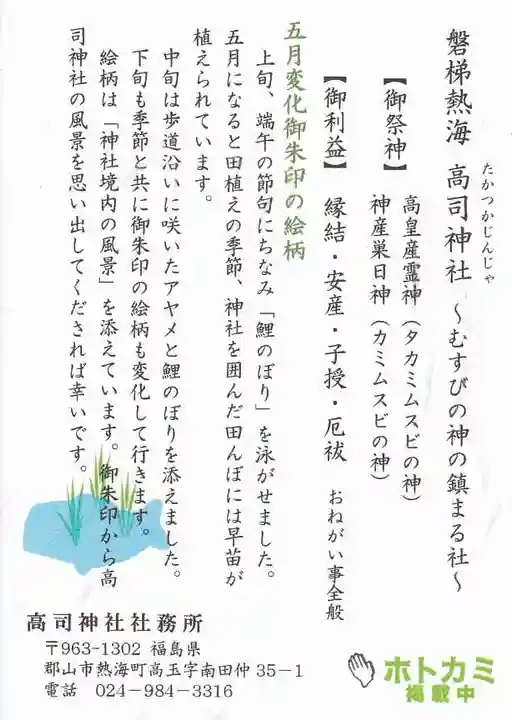 磐梯熱海 高司神社 ～むすびの神の鎮まる社～
たかつかじんじゃ
【御祭神】 高皇産霊神（タカミムスビの神）
神産巣日神（カミムスビの神）
【御利益】 縁結・安産・子授・厄祓 おねがい事全般
五月変化御朱印の絵柄
上旬、端午の節句にちなみ「鯉のぼり」を泳がせました。
五月になると田植えの季節、神社を囲んだ田んぼには早苗が
植えられています。
中旬は歩道沿いに咲いたアヤメと鯉のぼりを添えました。
下旬も季節と共に御朱印の絵柄も変化して行きます。
絵柄は「神社境内の風景」を添えています。御朱印から高
司神社の風景を思い出してくだされば幸いです。
高司神社社務所
〒963-1302 福島県
郡山市熱海町高玉字南田仲35－1
電話 024-984-3316
ホトカミ
掲載中